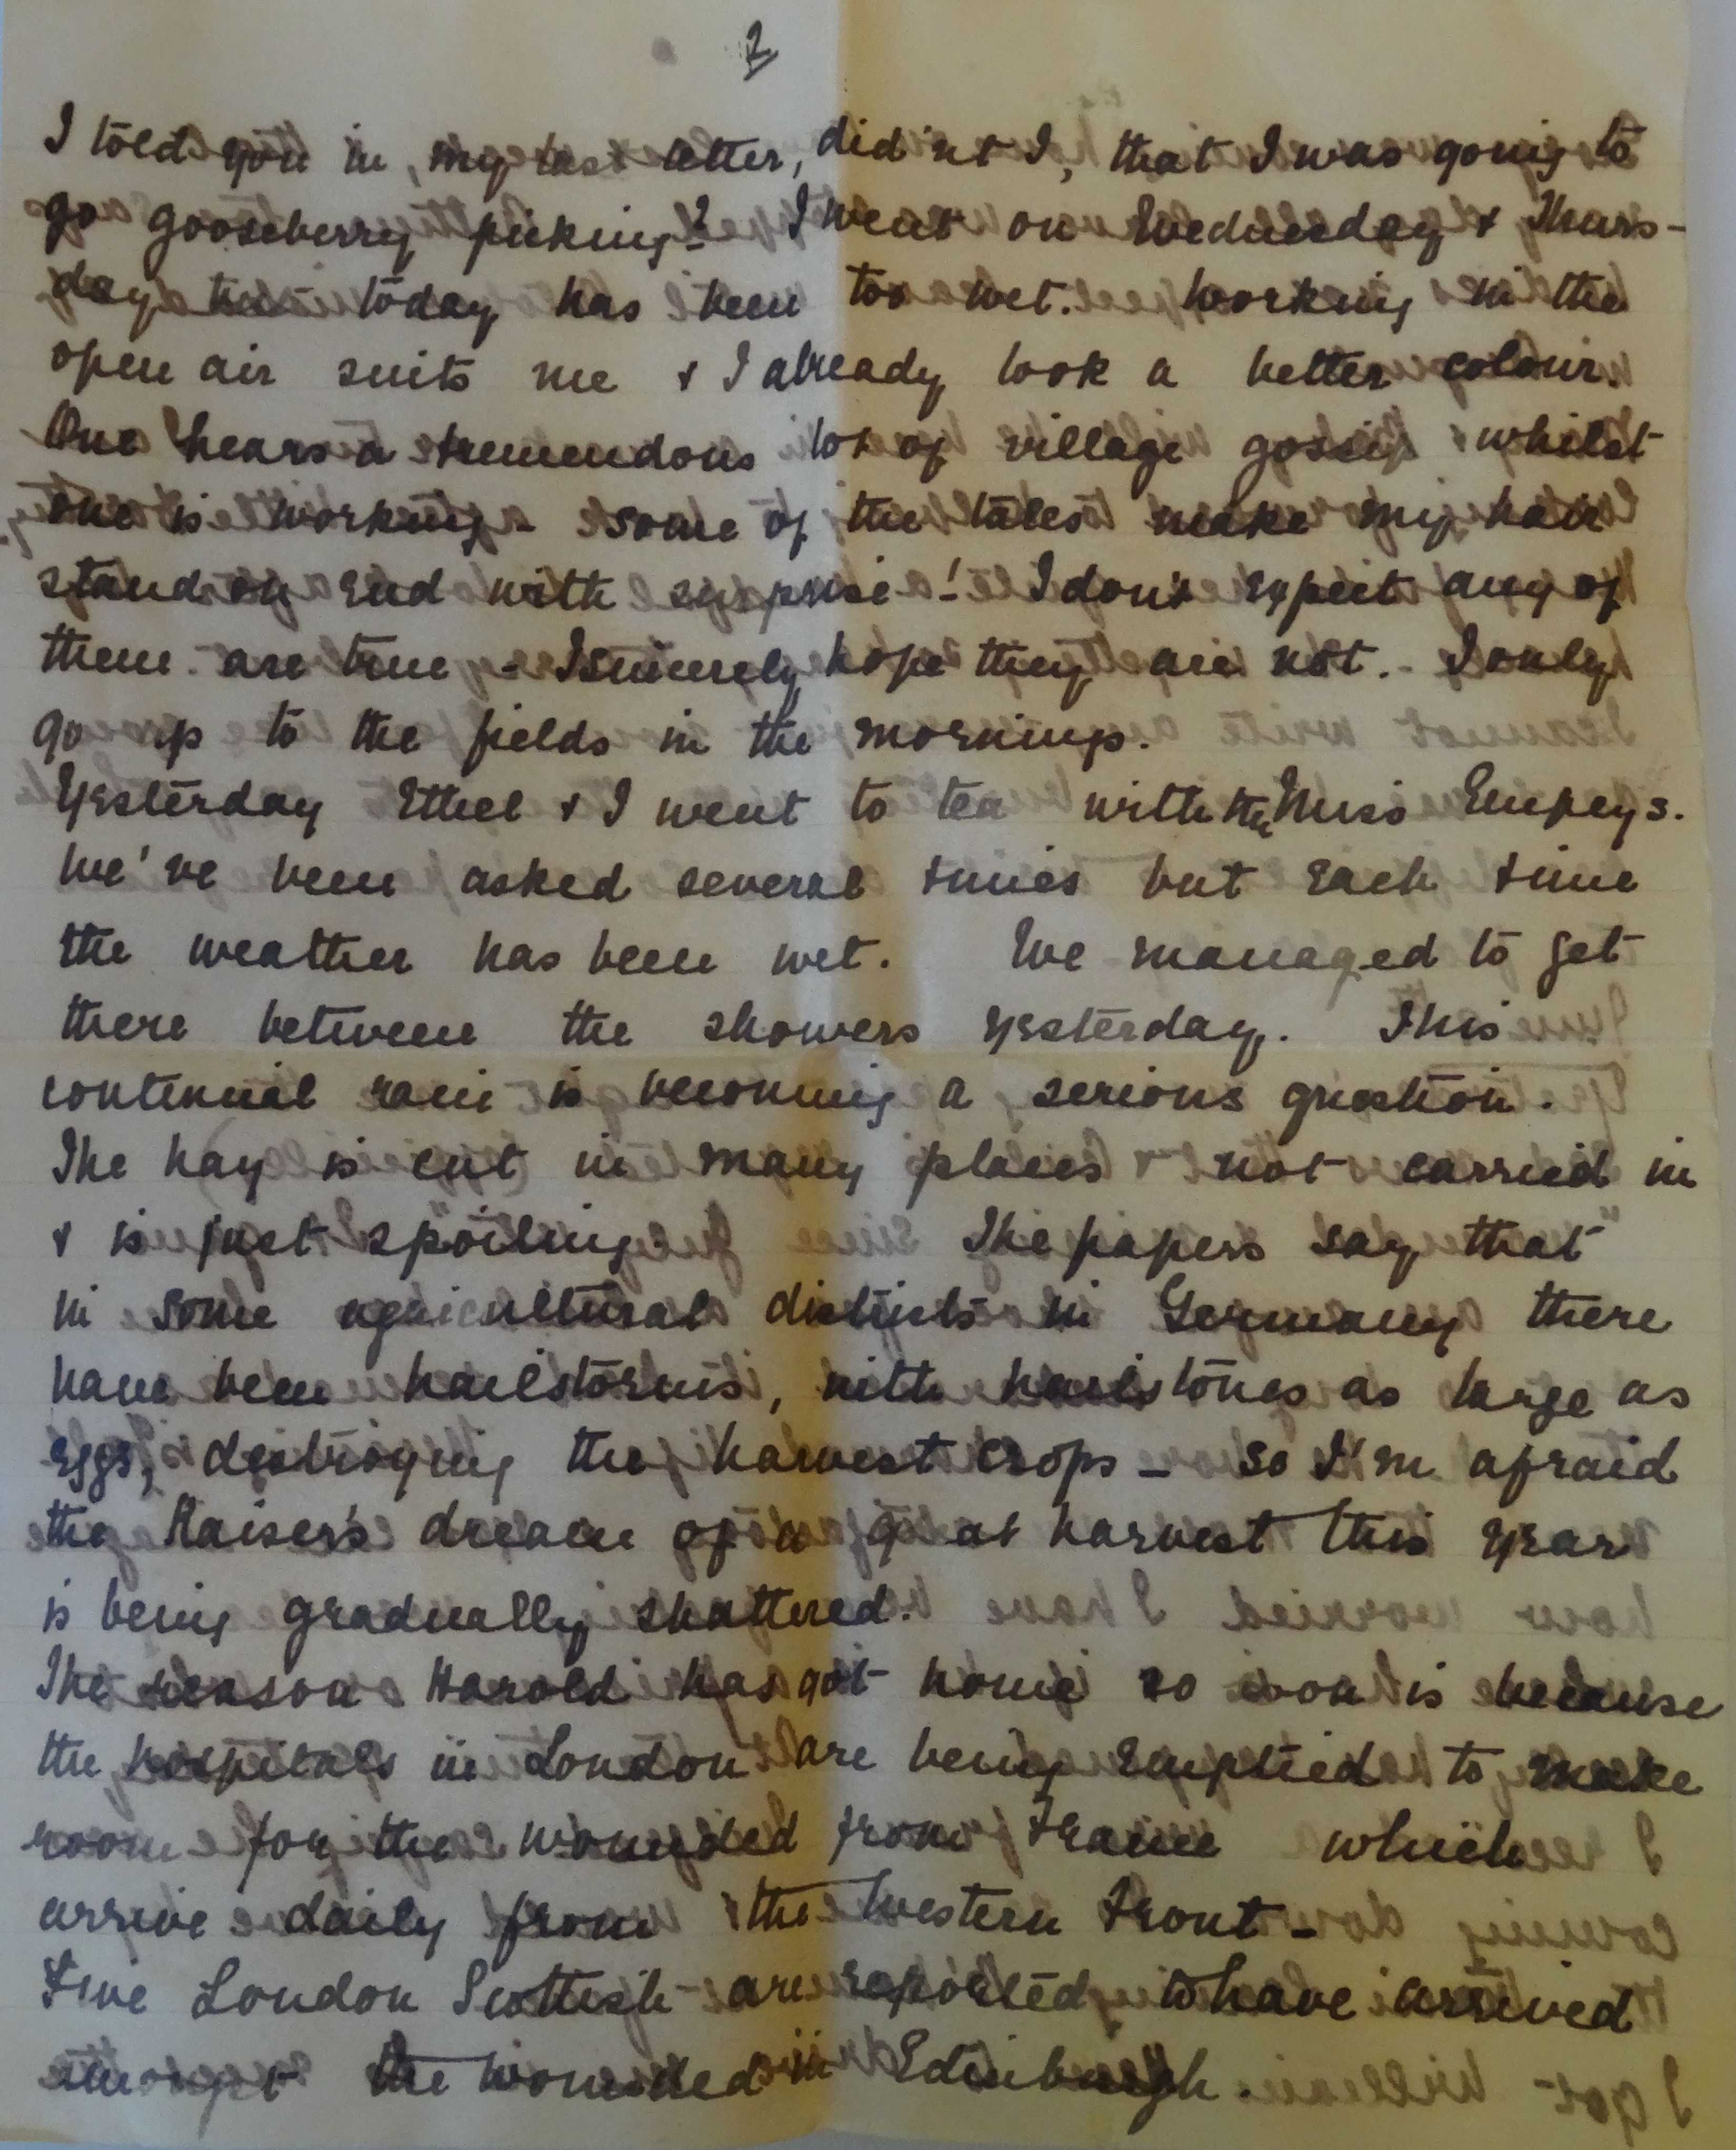 2
I told you in, my last letter, did'nt I, that I was going to
go gooseberry picking? I went on Wednesday & Thurs-
day but today has been too wet. Working in the
open air suits me & I already look a better colour.
One hears a tremendous lot of village gossip whilst
one is working - some of the tales make my hair
stand on end with suprise! I don't expect any of
them are true - I sincerely hope they are not. - I only
go up to the fields in the mornings.
Yesterday Ethel & I went to tea with the Miss Empeys.
We've been asked several times but each time
the weather has been wet. We managed to get
there between the showers yesterday. This
continual rain is becoming a serious question.
The hay is cut in many places & not carried in
& is just spoiling. The papers say that
in some agricultural districts in Germany there
have been hailstorms, with hailstones as large as
eggs, destroying the harvest crops - so I'm afraid
the Kaiser's dream of a great harvest this year
is being gradually shattered.
The reason Harold has got home so soon is because
the hospitals in London are being emptied to make
room for the wounded from France which
arrive daily from the Western Front -
Five London Scottish are reported to have arrived
amongst the wounded in Edinburgh.